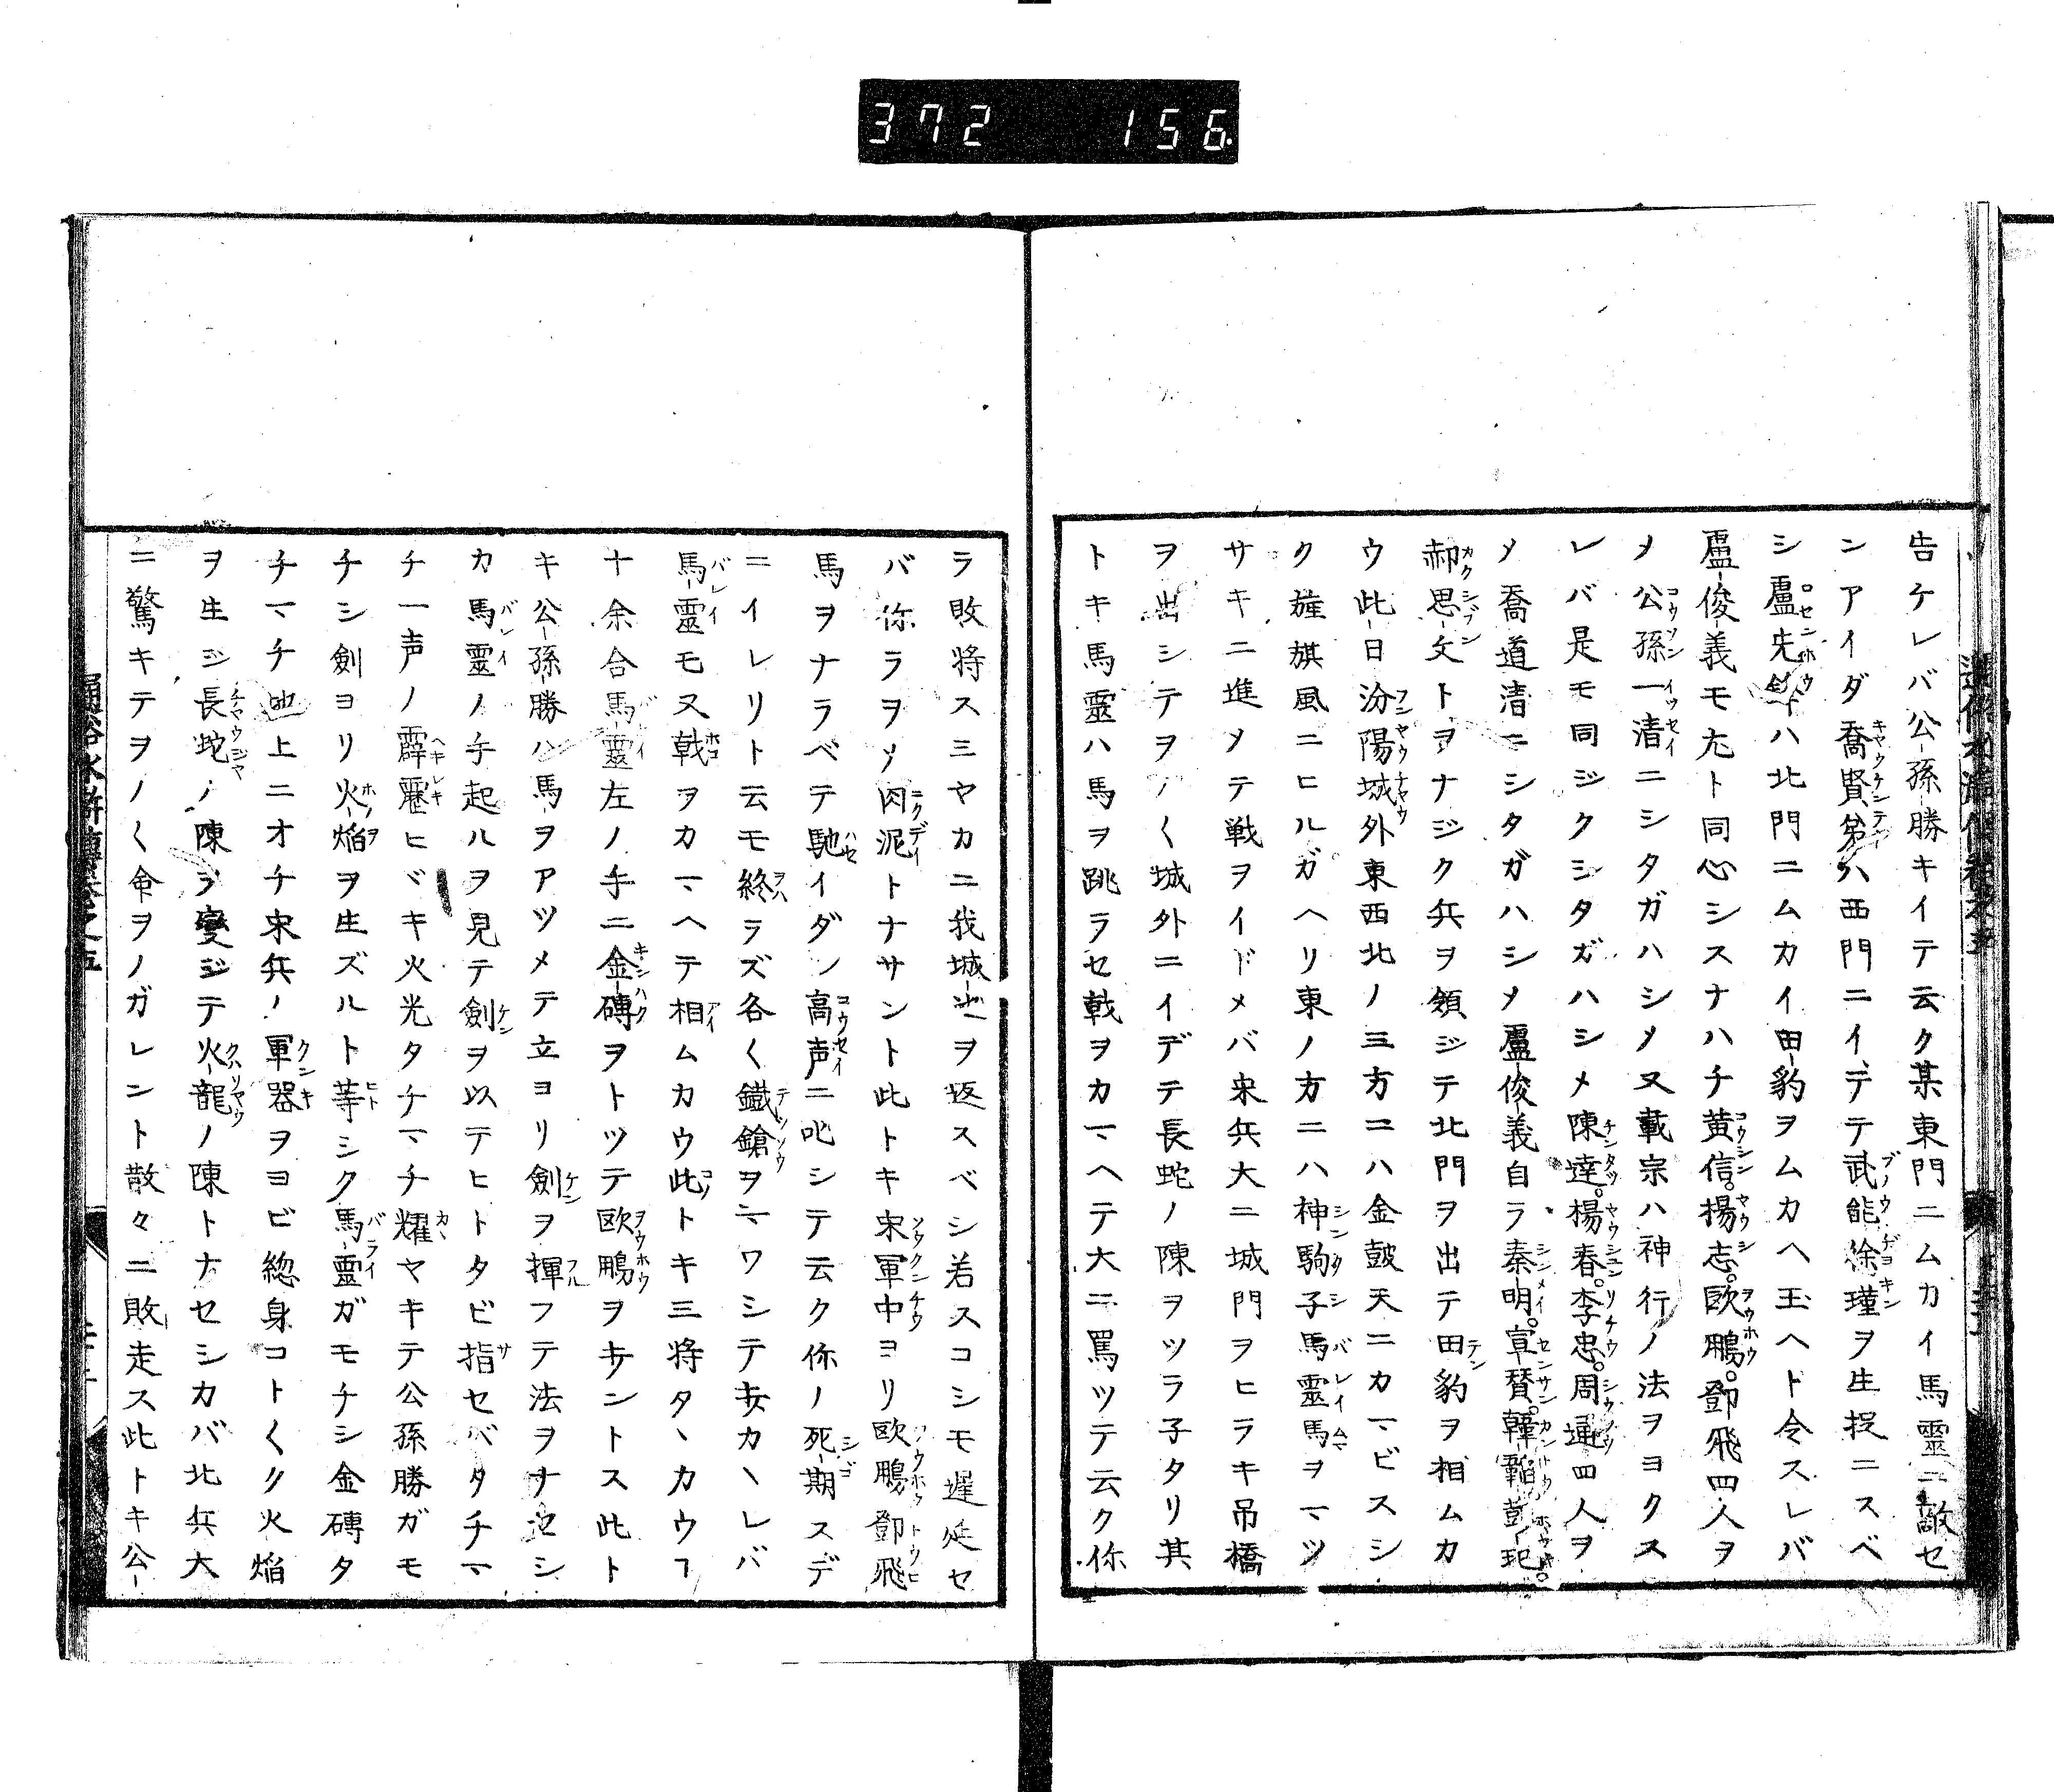 372 156
告ケレバ公孫勝キイテ云ク某東門ニムカイ馬靈ニ敵セ
ンアイダ喬賢弟ハ西門ニイデテ武能徐瑾ヲ生捉ニスベ
シ盧先鋒ハ北門ニムカイ田豹ヲムカヘ玉ヘト令スレバ
盧俊義モ尤ト同心シスナハチ黄信。楊志。歐鵬。鄧飛四人ヲ
メ公孫一清ニシタガハシメ又戴宗ハ神行ノ法ヲヨクス
レバ是モ同ジクシタガハシメ陳達。楊春。李忠。周通四人ヲ
メ喬道清ニシタガハシメ盧俊義自ラ秦明。宣賛。韓滔。彭玘。
郝思文トヲナジク兵ヲ領ジテ北門ヲ出テ田豹ヲ相ムカ
ウ此日汾陽城外東西北ノ三方ニハ金皷天ニカマビスシ
ク旌旗風ニヒルガヘリ東ノ方ニハ神駒子馬靈馬ヲマツ
サキニ進メテ戦ヲイドメバ宋兵大ニ城門ヲヒラキ吊橋
ヲ出シテヲノ〱城外ニイデテ長蛇ノ陳ヲツラ子タリ其
トキ馬靈ハ馬ヲ跳ラセ戟ヲカマヘテ大ニ罵ツテ云ク你
ラ敗将スミヤカニ我城池ヲ返スベシ若スコシモ遲延セ
バ你ラヲメ肉泥トナサント此トキ宋軍中ヨリ歐鵬鄧飛
馬ヲナラベテ馳イダシ高声ニ叱シテ云ク你ノ死期スデ
ニイレリト云モ終ラズ各〱鐵鎗ヲマワシテ𡴭カヽレバ
馬靈モ又戟ヲカマヘテ相ムカウ此トキ三将タヽカウヿ
十余合馬靈左ノ手ニ金磚ヲトツテ歐鵬ヲ𡴭ントス此ト
キ公孫勝ハ馬ヲアツメテ立ヨリ劍ヲ揮フテ法ヲナセシ
カ馬靈ノ手起ルヲ見テ劍ヲ以テヒトタビ指セバタチマ
チ一声ノ霹靂ヒヾキ火光タチマチ耀ヤキテ公孫勝ガモ
チシ劍ヨリ火焔ヲ生ズルト等シク馬靈ガモチシ金磚タ
チマチ地上ニオチ宋兵ノ軍器ヲヨビ総身コト〱ク火焔
ヲ生ジ長蛇ノ陳ヲ變ジテ火龍ノ陳トナセシカバ北兵大
ニ驚キテヲノ〱命ヲノガレント散々ニ敗走ス此トキ公